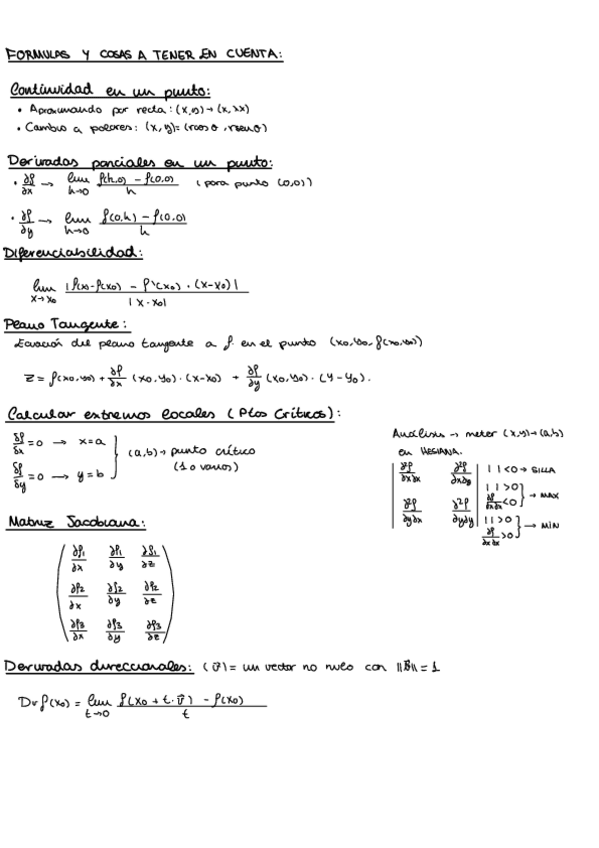 FORMULAS Y COSAS A TENER EN CUENTA:
Continuidad en un punto:
• Aproximando por recta: (x,y)→(x,λx)
• Cambio a polares: (x,y)=(rcosθ, rsenθ)
Derivadas parciales en un punto:
• ∂f/∂x → lim h→0 (f(h,0) − f(0,0))/h (para punto (0,0))
• ∂f/∂y → lim h→0 (f(0,h) − f(0,0))/h
Diferenciabilidad:
lim x→x0 |f(x)-f(x0) − f'(x0)·(x−x0)| / |x-x0|
Plano Tangente:
Ecuación del plano tangente a f en el punto (x0,y0,f(x0,y0))
Z = f(x0,y0) + ∂f/∂x (x0,y0)·(x-x0) + ∂f/∂y (x0,y0)·(y-y0).
Calcular extremos locales (Ptos Críticos):
∂f/∂x = 0 → x=a
∂f/∂y = 0 → y=b
} (a,b)→ punto crítico
(1 o varios)
Análisis → meter (x,y)→(a,b)
en HESIANA.
| ∂²f/∂x∂x ∂²f/∂x∂y |
| ∂²f/∂y∂x ∂²f/∂y∂y |
| | <0 → SILLA
| | >0
∂f/∂x∂x <0 } → MAX
| | >0
∂f/∂x∂x >0 } → MIN
Matriz Jacobiana:
∂f1/∂x ∂f1/∂y ∂f1/∂z
∂f2/∂x ∂f2/∂y ∂f2/∂z
∂f3/∂x ∂f3/∂y ∂f3/∂z
Derivadas direccionales: (v⃗)= un vector no nulo con ||v⃗|| = 1
Dv f(x0) = lim t→0 (f(x0 + t·v⃗) − f(x0))/t